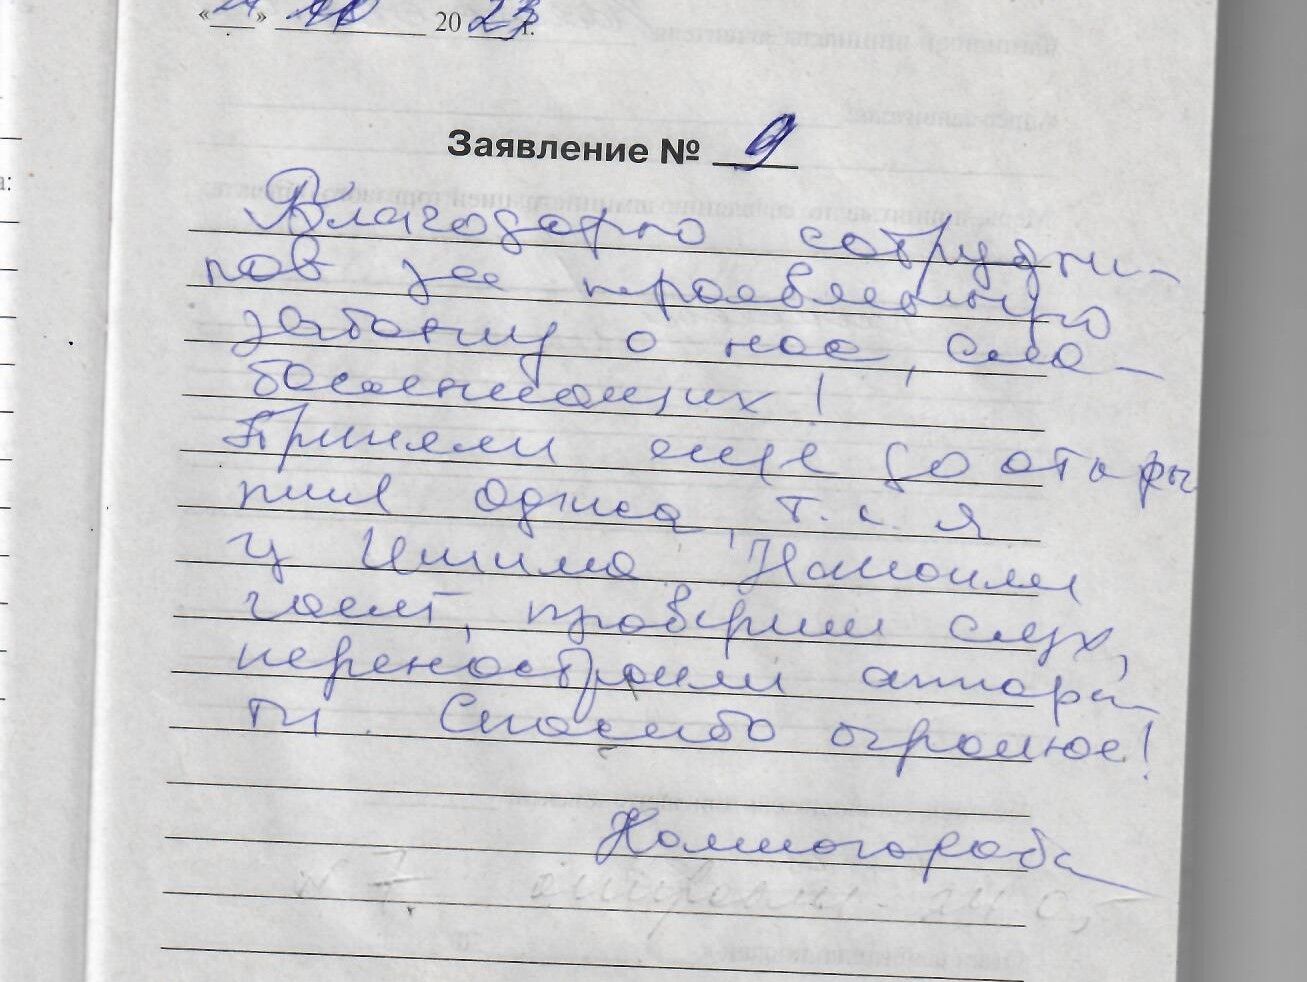 « » 10 20 23 г.
Заявление № 9
Благодарю сотрудни-
ков за проявленную
заботу о нас, сла-
бослышащих!
Приняли еще до откры
тия офиса, т.к. я
с Ишима. Напоили
чаем, проверили слух,
перенастроили аппара-
ты. Спасибо огромное!